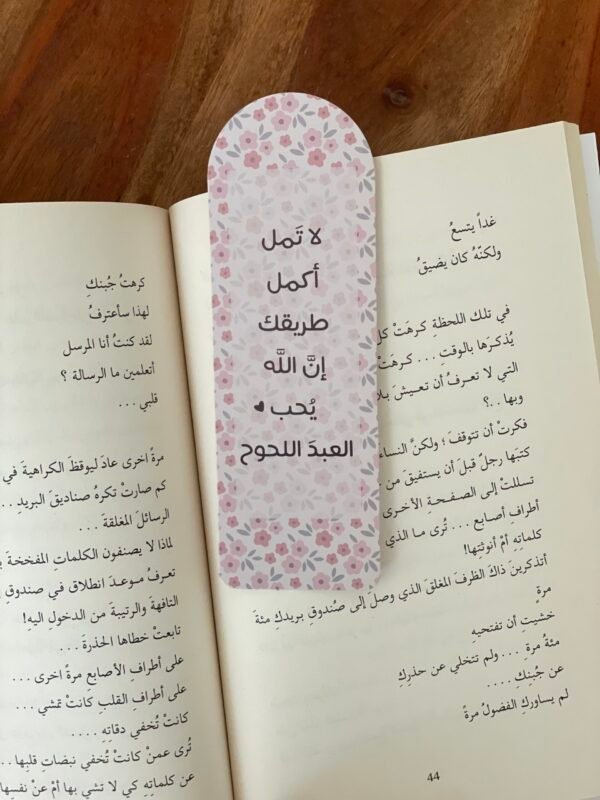 لا تَمل
أكمل
طريقك
إنَّ اللَّه
يُحب
العبدَ اللحوح
غداً يتسعُ
ولكنّهُ كان يضيقُ
في تلك اللحظةِ كرهَتْ كل
يُذكـرَها بالوقتِ . . . كرهَتْ
التي لا تعـرفُ أن تعـيشَ بـلا
وبها . .؟
فكرتْ أن تتوقفَ ؛ ولكنَّ النساء
كتبَها رجلٌ قبلَ أن يستفيقَ من
تسللتْ إلى الصفـحةِ الأخـرى
أطرافِ أصابع . . . تُرى ما الذي
كلماتِهِ أمْ أنوثتِها!
أتذكرينَ ذاكَ الظرفَ المغلقَ الذي وصلَ إلى صُندوقِ بريدكِ مئةَ
مرةٍ
خشيتِ أن تفتحيهِ
مئةُ مرةٍ . . . ولم تتخلي عن حذركِ
عن جُبنِكِ . . . .
لم يساوركِ الفضولُ مرةً
44
كرهتُ جُبنكِ
لهذا سأعترفُ
لقد كنتُ أنا المرسل
أتعلمين ما الرسالة ؟
قلبي . . .
مرةً اخرى عادَ ليوقظَ الكراهيةَ في
كم صارتْ تكرهُ صناديقَ البريدِ . . .
الرسائلَ المغلقةَ . . .
لماذا لا يصنفون الكلماتِ المفخخةَ
تعرفُ مـوعـدَ انطلاق في صندوقِ
التافهةَ والرتيبةَ من الدخولِ اليهِ!
تابعتْ خطاها الحذرةَ . . .
على أطرافِ الأصابعِ مرةً اخرى . . .
على أطرافِ القلبِ كانتْ تمشي . . .
كانتْ تُخفي دقاتِهِ . . . .
تُرى عمنْ كانتْ تُخفي نبضاتِ قلبِها . .
عن كلماتِهِ كي لا تشي بها أمْ عنْ نفسِها